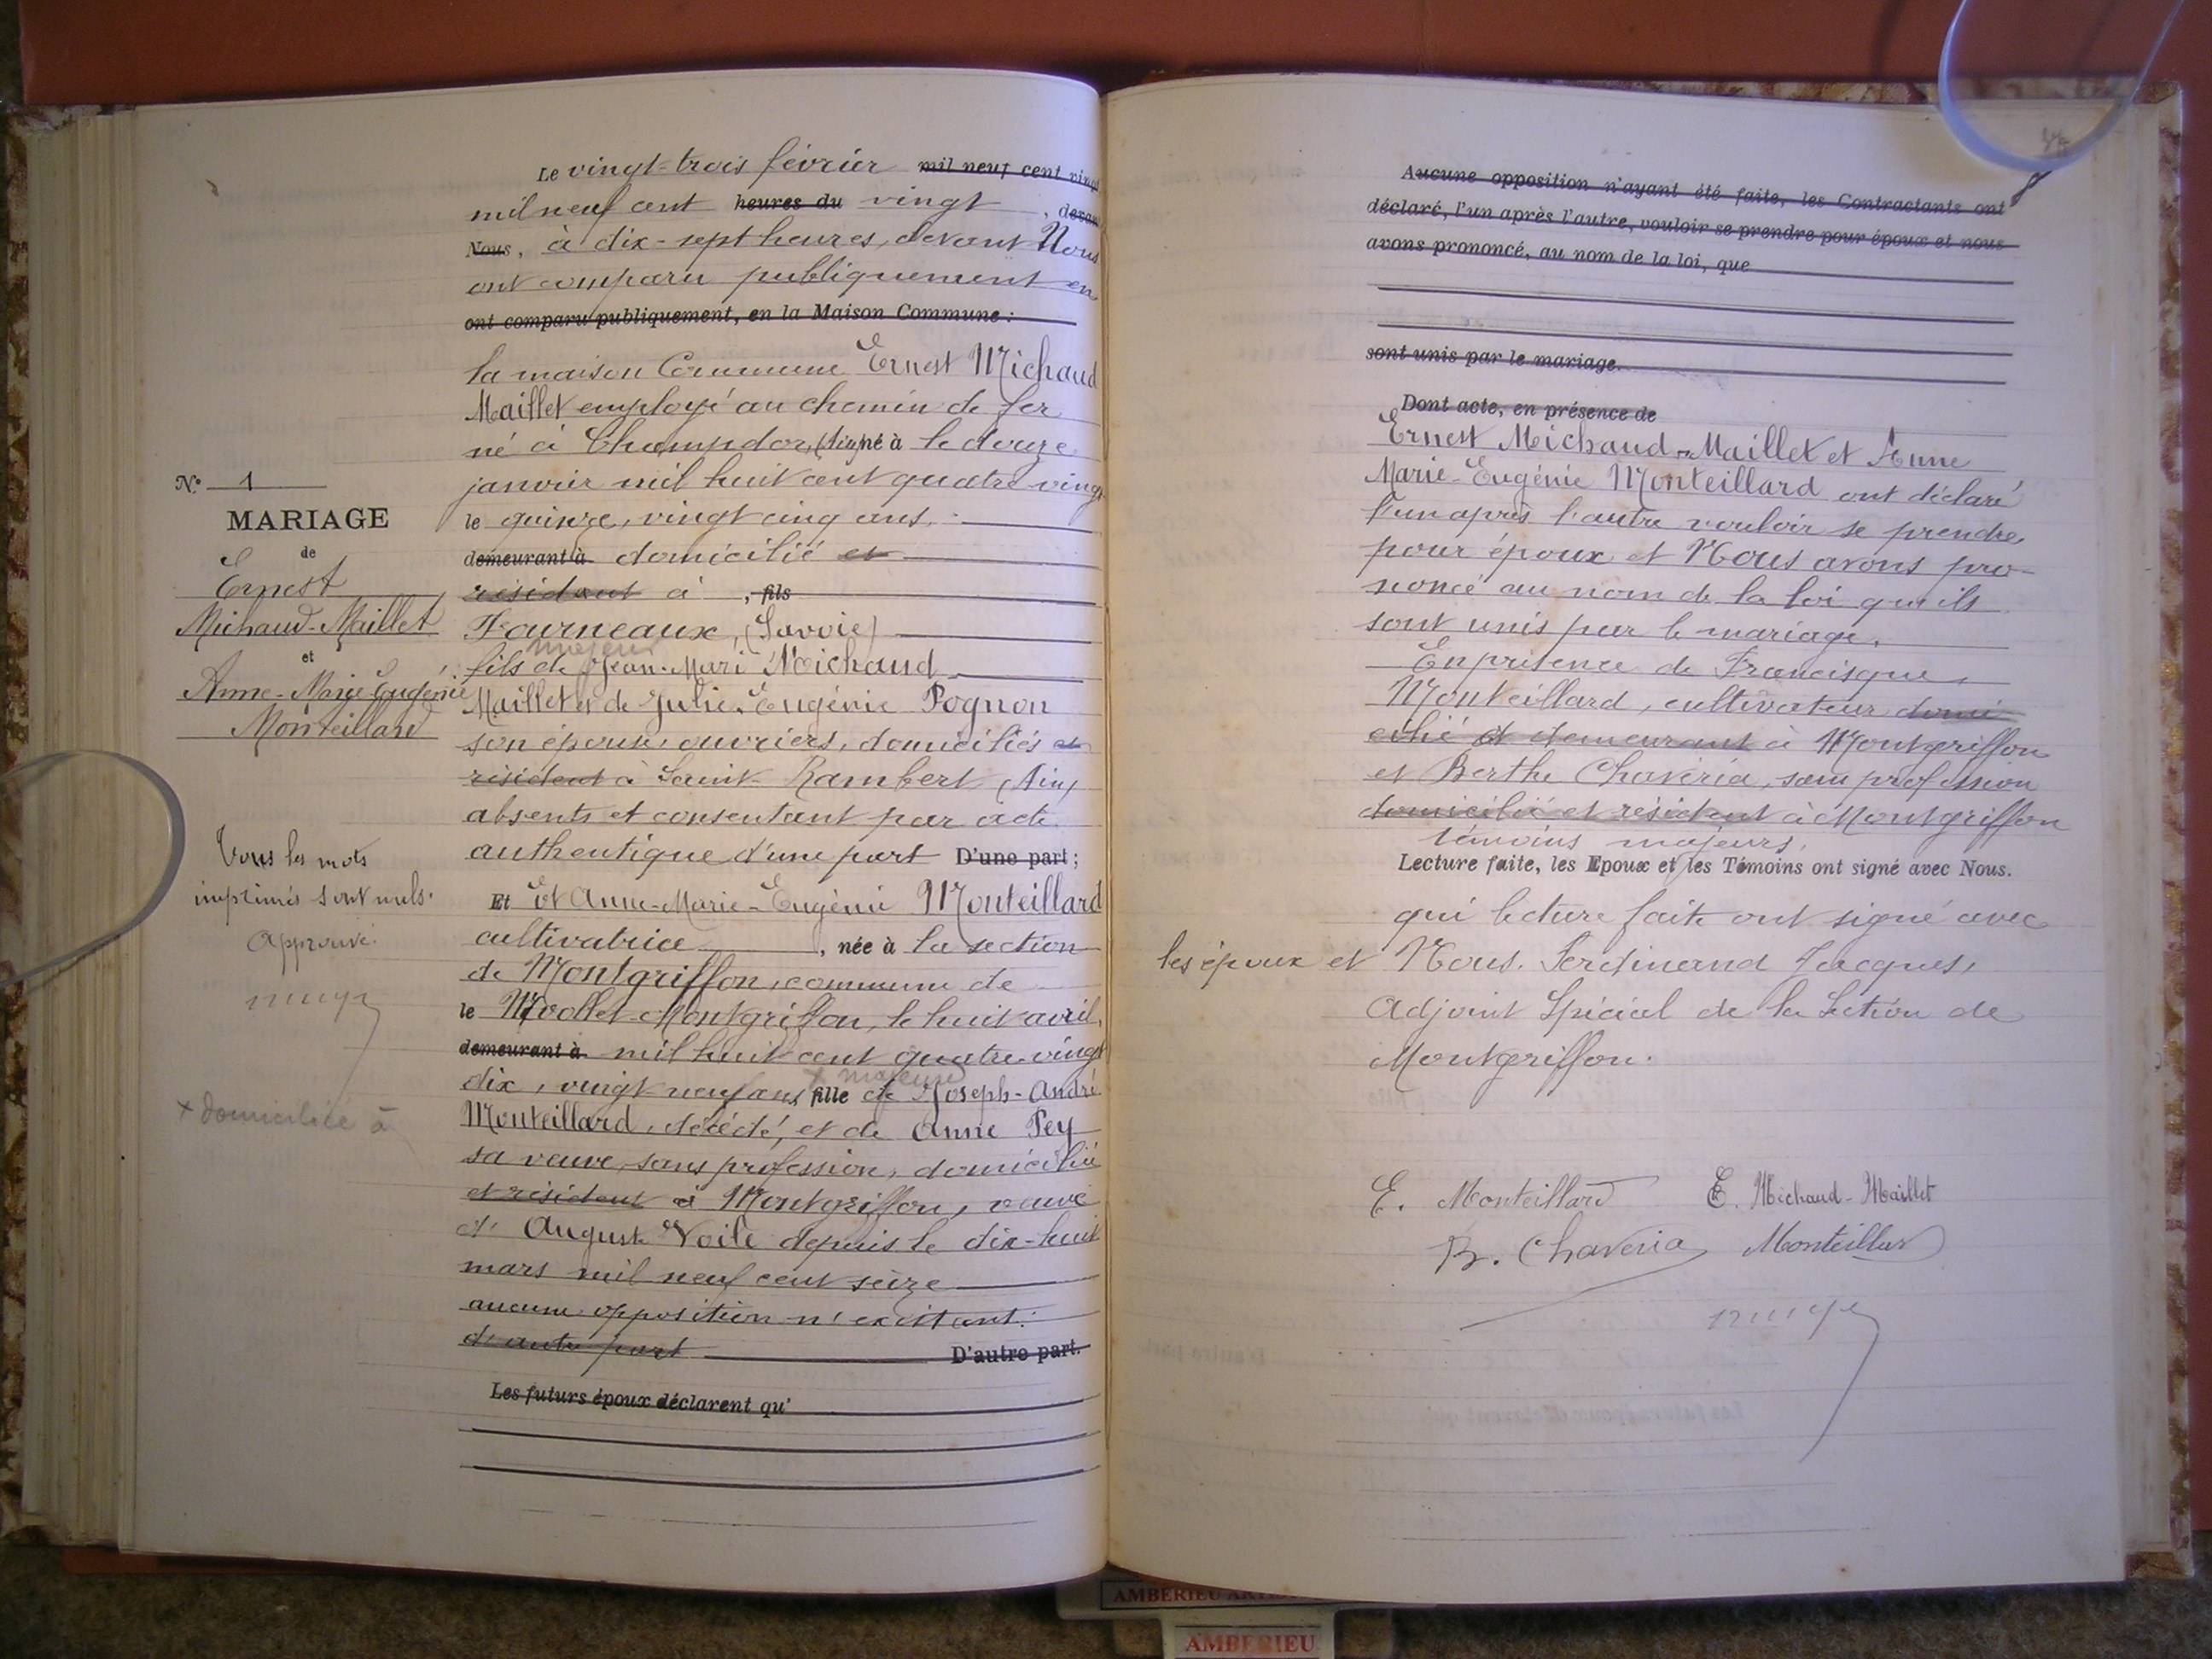 N.° 1
MARIAGE
de
Ernest
Michaud-Maillet
et
Anne-Marie Eugénie
Monteillard
Tous les mots
imprimés sont nuls.
Approuvé.
+ domiciliée à
Le vingt-trois février mil neuf cent vingt
mil neuf cent heures du vingt, devant
Nous, à dix-sept heures, devant Nous
ont comparu publiquement en
ont comparu publiquement, en la Maison Commune :
la maison Commune Ernest Michaud
Maillet employé au chemin de fer
né à Champdor, (Ain) né à le douze
janvier mil huit cent quatre vingt
le quinze, vingt cinq ans,
demeurant à domicilié et
résidant à , fils
Fourneaux, (Savoie)
majeur
fils de Jean-Mari Michaud
Maillet et de Julie-Eugénie Pognon
son épouse, ouvriers, domiciliés et
résident à Saint Rambert (Ain)
absents et consentant par acte
authentique d'une part D'une part ;
Et et Anne-Marie-Eugénie Monteillard
cultivatrice , née à la section
de Montgriffon, commune de
le Nivollet-Montgriffon, le huit avril,
demeurant à mil huit cent quatre-vingt
+ majeure
dix, vingt-neuf ans, fille de Joseph-André
Monteillard, décédé, et de Anne Pey
sa veuve, sans profession, domiciliée
et résident à Montgriffon, veuve
d' Auguste Voile depuis le dix-huit
mars mil neuf cent seize
aucune opposition n'existant.
d'autre part D'autre part.
Les futurs époux déclarent qu'
Aucune opposition n'ayant été faite, les Contractants ont
déclaré, l'un après l'autre, vouloir se prendre pour époux et nous
avons prononcé, au nom de la loi, que
sont unis par le mariage.
Dont acte, en présence de
Ernest Michaud-Maillet et Anne
Marie-Eugénie Monteillard ont déclaré
l'un après l'autre vouloir se prendre
pour époux et Nous avons pro-
noncé au nom de la loi qu'ils
sont unis par le mariage.
En présence de Francisque
Monteillard, cultivateur domi-
cilié et demeurant à Montgriffon
et Berthe Chavéria, sans profession
domicilié et résident à Montgriffon
témoins majeurs,
Lecture faite, les Epoux et les Témoins ont signé avec Nous.
qui lecture faite ont signé avec
les époux et Nous. Ferdinand Jacques,
Adjoint Spécial de la Section de
Montgriffon.
E. Monteillard E. Michaud-Maillet
B. Chaveria Monteillard
AMBERIEU
AMBERIEU